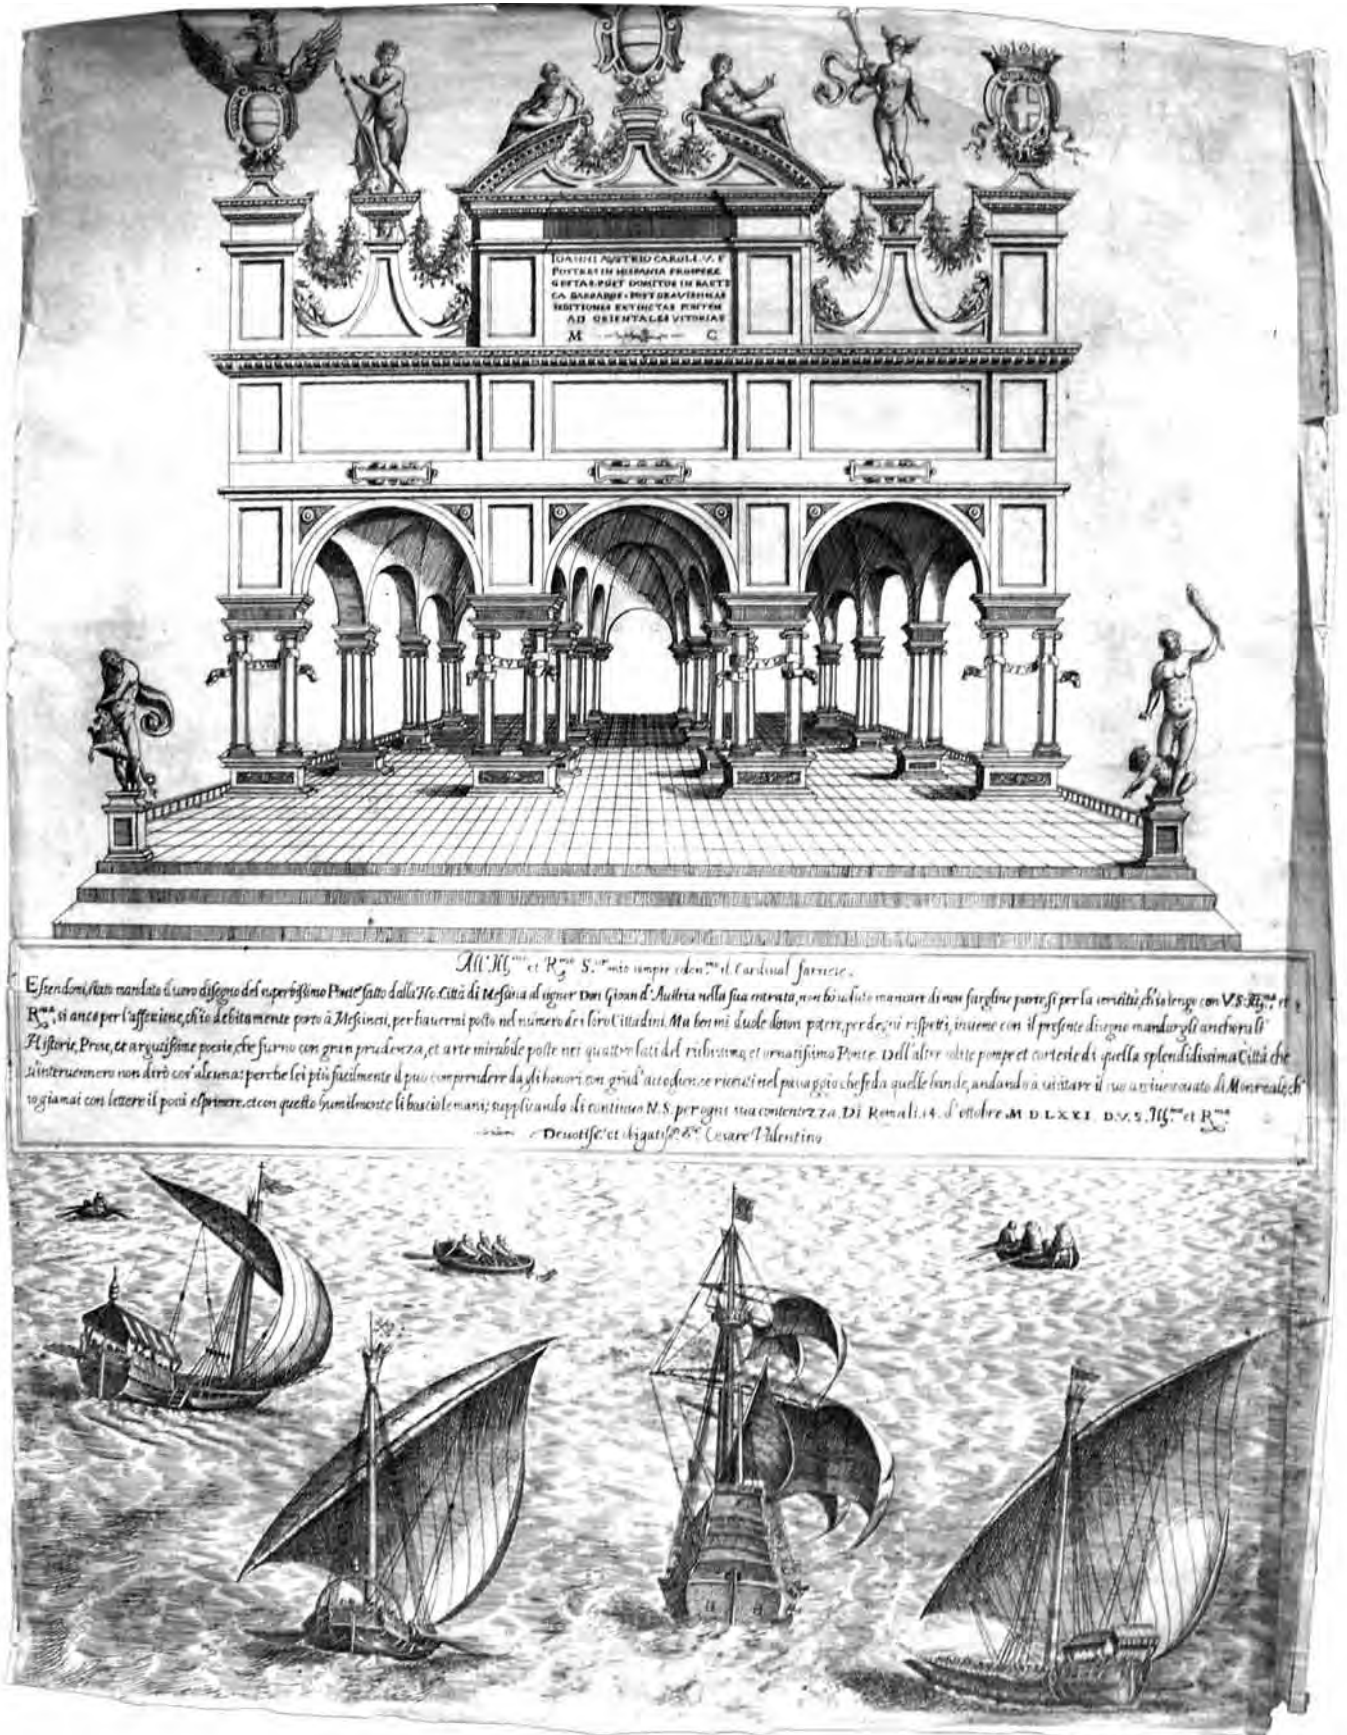 IOANNI AUSTRIO CAROLI. V. F
POSTRES IN HISPANIA PROSPERE
GESTAS. POST DOMITOS IN BAETI
CA BARBAROS. POST GRAVISSIMAS
SEDITIONES EXTINCTAS
AD ORIENTALES VITORIAS
M C
All' Ill.mo et R.mo S.or mio sempre il Cardinal farnese.
Essendomi stato mandato il vero disegno del superbissimo Ponte fatto dalla No. Città di Messina al signor Don Giovan d'Austria nella sua entrata, non hò voluto mancare di non fargline parte, si per la servitù, ch'io tengo con V.S. Ill.ma et
R.ma, si anco per l'affezione, ch'io debitamente porto à Messinesi, per havermi posto nel numero de i loro Cittadini. Ma ben mi duole di non potere, per degni rispetti, insieme con il presente disegno mandargli anchora li
Historie, Prose, et argutissime poesie, che furno con gran prudenza, et arte mirabile poste nei quattro lati del et ornatissimo Ponte. Dell'altre solite pompe et cortesie di quella splendidissima Città che
s'intervennero non dirò cos'alcuna: perche lei più facilmente il può comprendere da gli honori, con grād' accoglienze ricevuti nel passaggio che fe da quelle bande, andando à visitare il suo arcivescovato di Monreale, ch'
io giamai con lettere il possi esprimere. et con questo humilmente li bascio le mani; supplicando di continuo N.S. per ogni sua contentezza. Di Roma li 14. d'ottobre M D LXXI. D.V.S. Ill.ma et R.ma
Devotiss.o et obligatiss.o Cesare Valentino